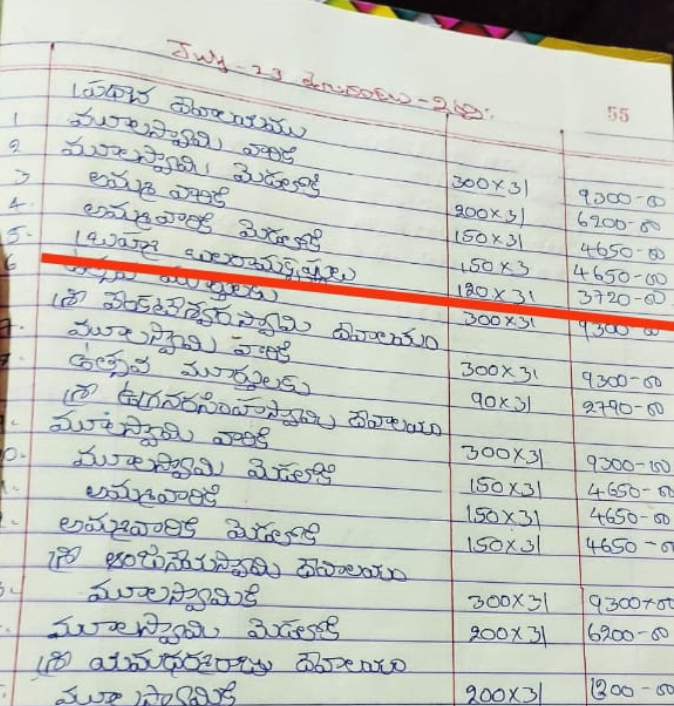 July-23 పూలదండలు-విధి:
55
ప్రధాన దేవాలయము
1 మూలస్వామి వారికి 300×31 9300-00
2 మూలస్వామి మెడలోకి 200×31 6200-00
3 అమ్మ వారికి 150×31 4650-00
4. అమ్మవారికి మెడలోకి 150×3 4650-00
5. బలరామకృష్ణులు 120×31 3720-00
6 ఉత్సవ మూర్తులకు 300×31 9300-00
శ్రీ వేంకటేశ్వరస్వామి దేవాలయం
7. మూలస్వామి వారికి 300×31 9300-00
ఉత్సవ మూర్తులకు 90×31 2790-00
శ్రీ ఉగ్రనరసింహస్వామి దేవాలయం
మూలస్వామి వారికి 300×31 9300-00
0. మూలస్వామి మెడలోకి 150×31 4650-00
అమ్మవారికి 150×31 4650-00
అమ్మవారికి మెడలోకి 150×31 4650-00
శ్రీ ఆంజనేయస్వామి దేవాలయం
మూలస్వామికి 300×31 9300-00
మూలస్వామి మెడలోకి 200×31 6200-00
శ్రీ యమధర్మరాజు దేవాలయం
మూలస్వామికి 200×31 1200-00